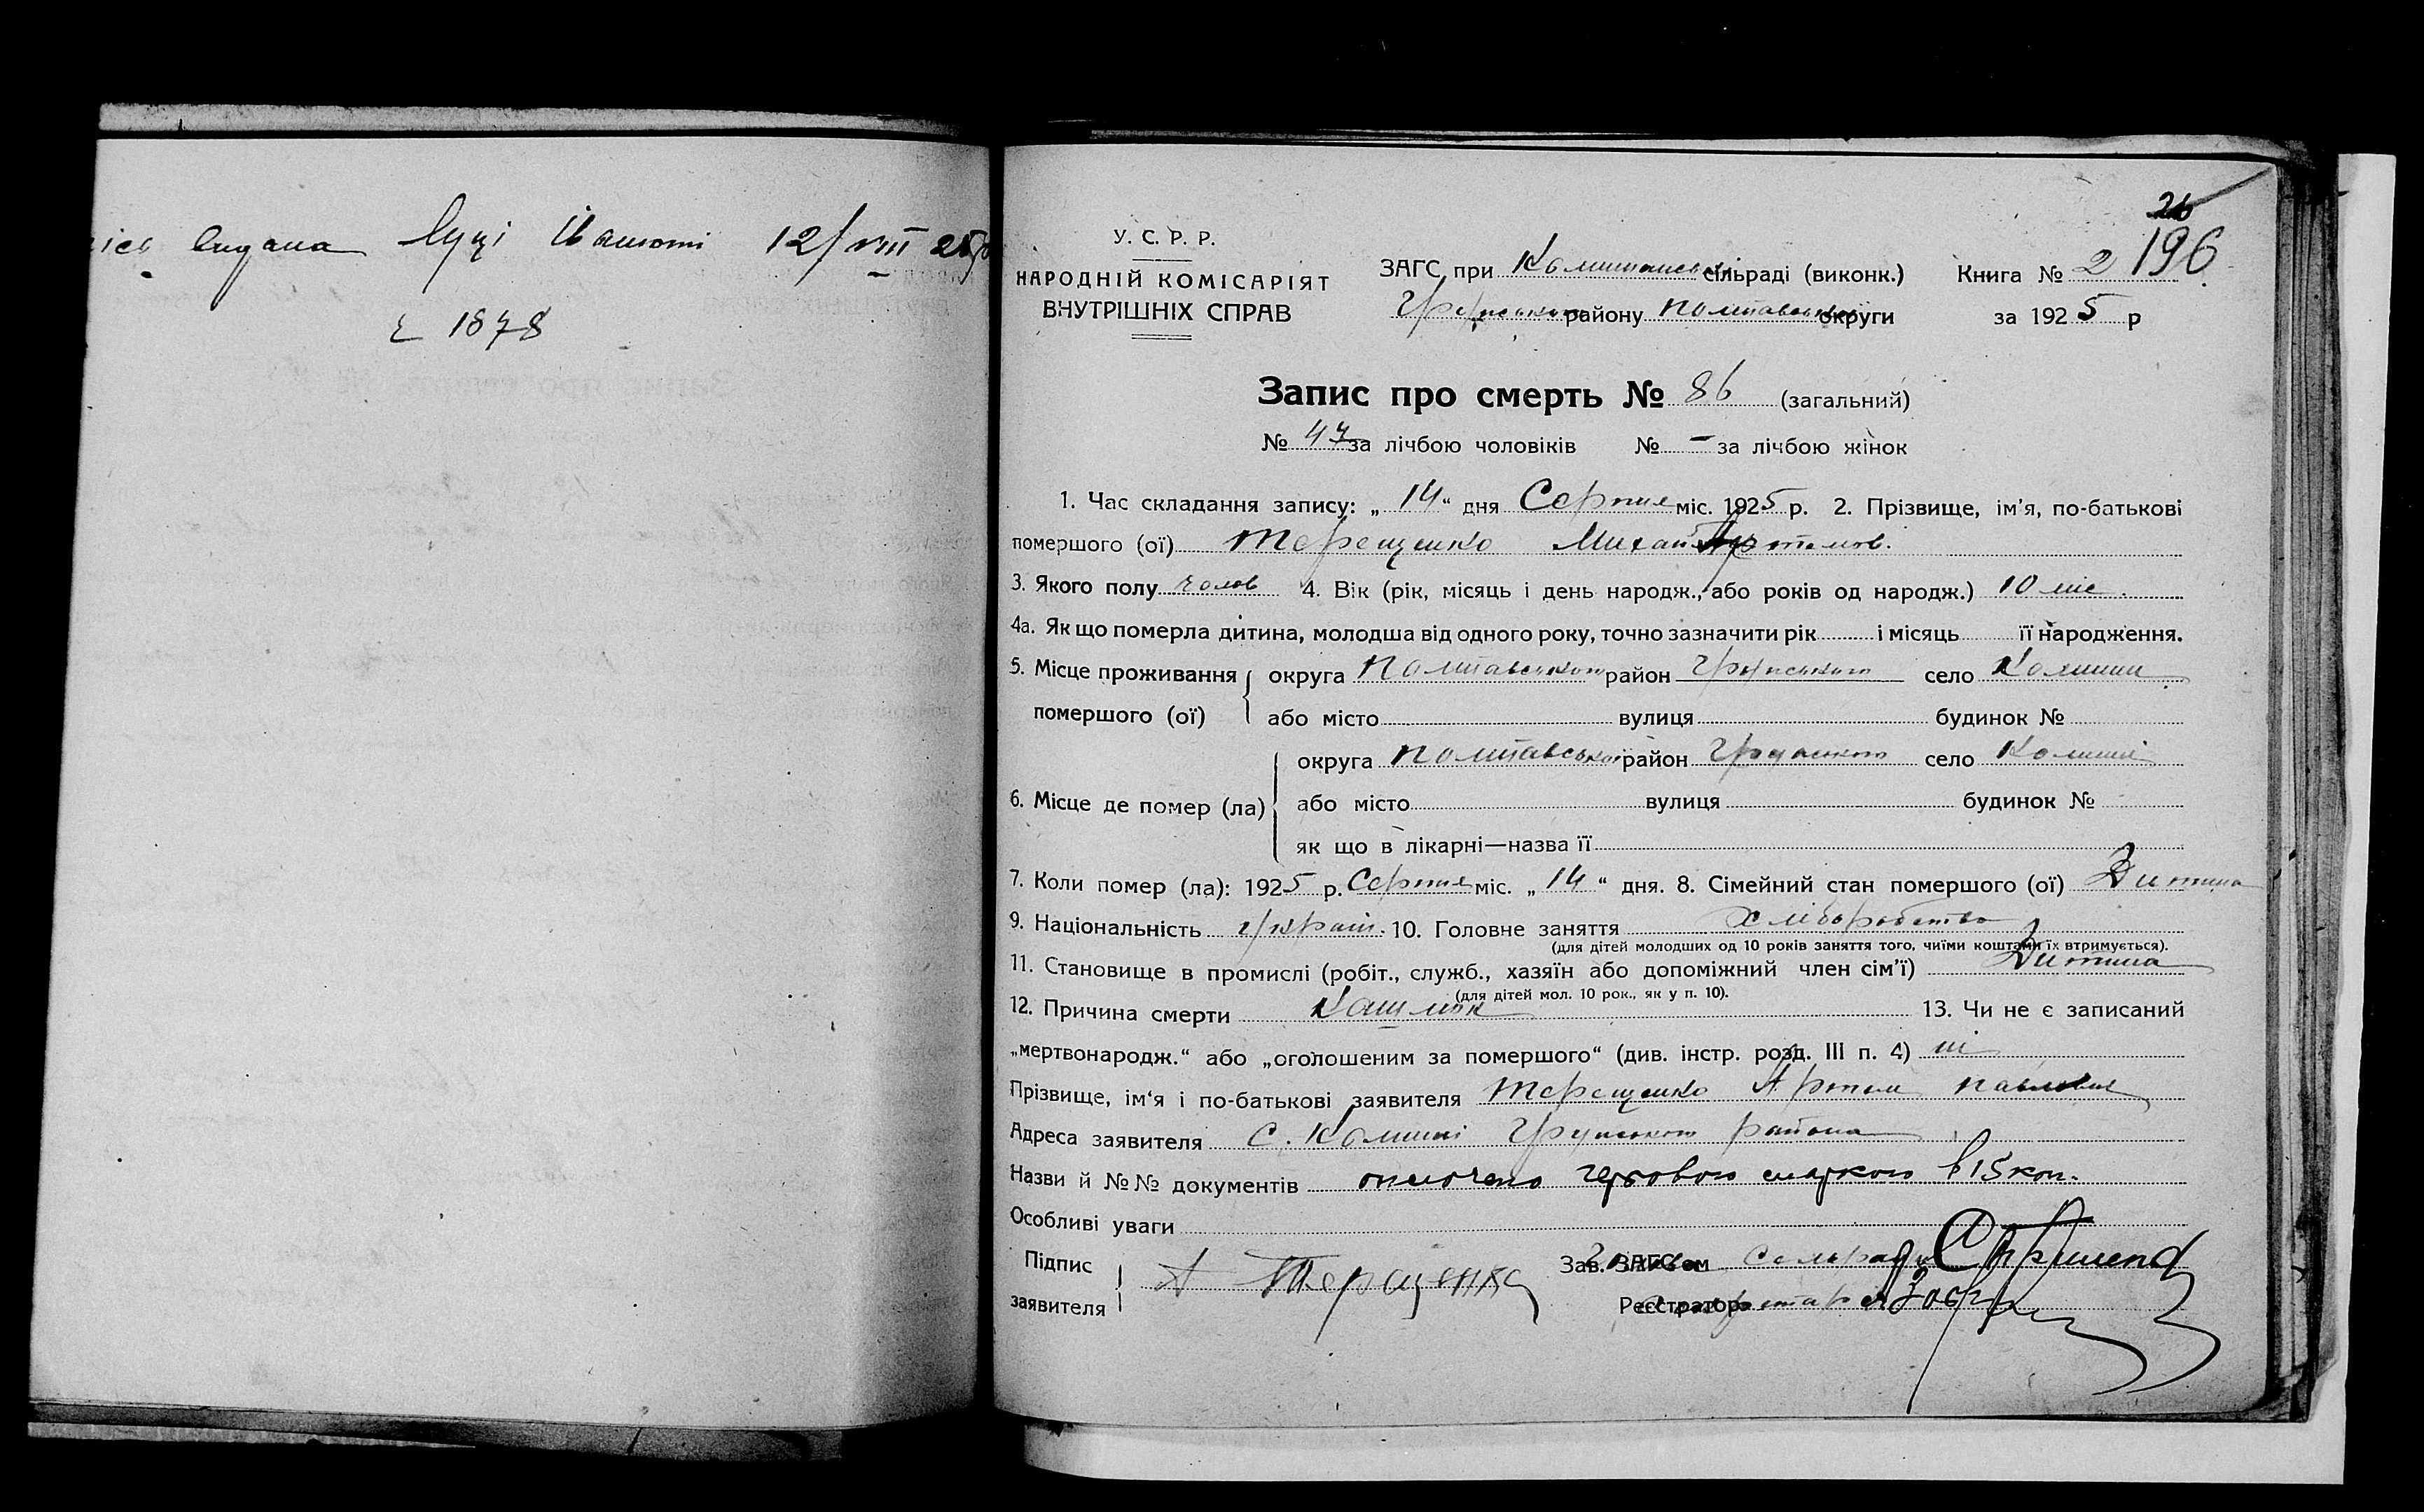 видана Іванові 12/VIII 25р
1878
26
196
У. С. Р. Р.
НАРОДНІЙ КОМІСАРІЯТ
ВНУТРІШНІХ СПРАВ
ЗАГС при Комишанській сільраді (виконк.)
Грунського району Полтавської округи
Книга № 2
за 1925 р
Запис про смерть № 86 (загальний)
№ 47 за лічбою чоловіків № – за лічбою жінок
1. Час складання запису: „ 14 “ дня Серпня міс. 1925 р. 2. Прізвище, ім'я, по-батькові
помершого (ої) Терещенко Михайло Артемов.
3. Якого полу чолов 4. Вік (рік, місяць і день народж., або років од народж.) 10 міс.
4а. Як що померла дитина, молодша від одного року, точно зазначити рік і місяць її народження.
5. Місце проживання помершого (ої) округа Полтавської район Грунського село Комиши
або місто вулиця будинок №
6. Місце де помер (ла) округа Полтавської район Грунського село Комиші
або місто вулиця будинок №
як що в лікарні—назва її
7. Коли помер (ла): 1925 р. Серпня міс. „ 14 “ дня. 8. Сімейний стан помершого (ої) Дитина
9. Національність україн. 10. Головне заняття хліборобство
(для дітей молодших од 10 років заняття того, чиїми коштами їх втримується).
11. Становище в промислі (робіт., служб., хазяїн або допоміжний член сім'ї) Дитина
(для дітей мол. 10 рок., як у п. 10).
12. Причина смерти Кашлюк 13. Чи не є записаний
„мертвонародж.“ або „оголошеним за помершого“ (див. інстр. розд. III п. 4) ні
Прізвище, ім'я і по-батькові заявителя Терещенко Артем Павлович
Адреса заявителя С. Комиші Грунського района
Назви й №№ документів оплочено гербовою маркою в 15 коп.
Особливі уваги
Підпис заявителя А Терещенко
Зав. ЗАГС'ом Голова Сельради
Реєстратор Секретар